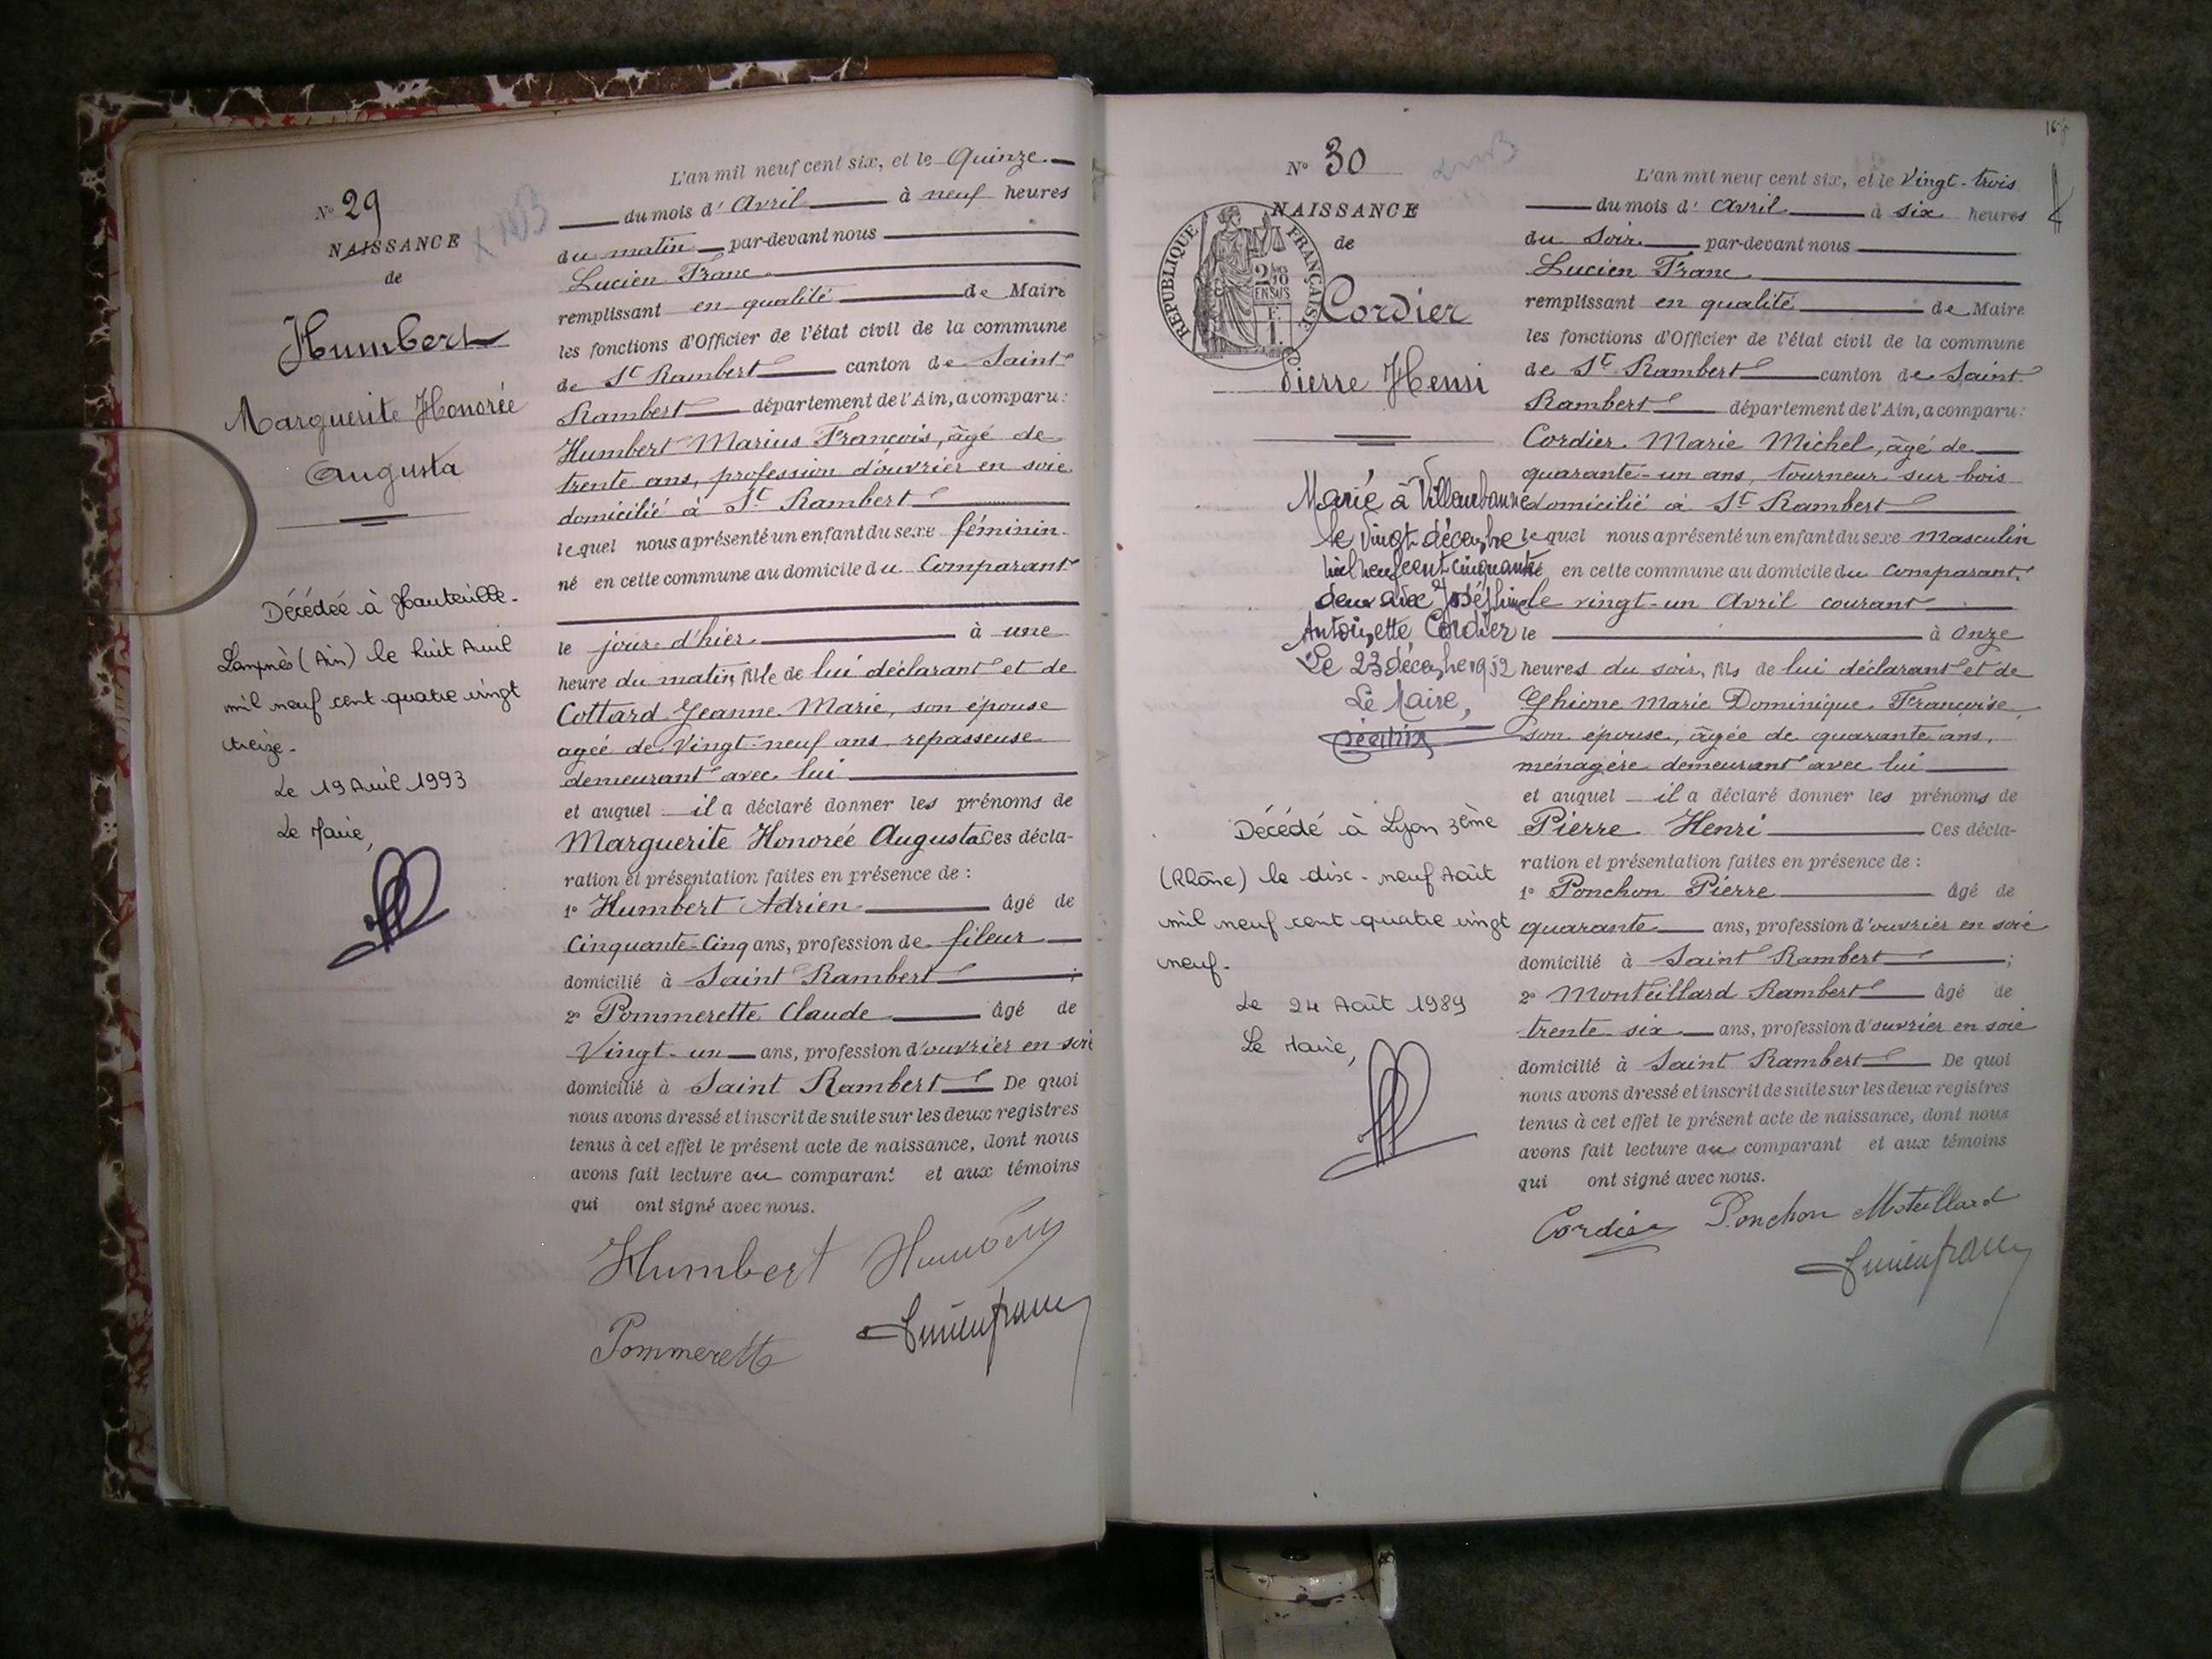 N° 29
NAISSANCE
de
Humbert
Marguerite Honorée
Augusta
Décédée à Hauteville-
Lompnès (Ain) le huit Avril
mil neuf cent quatre vingt
treize.
Le 19 Avril 1993
Le Maire,
L'an mil neuf cent six, et le Quinze
du mois d'Avril à neuf heures
du matin par-devant nous
Lucien Franc
remplissant en qualité de Maire
les fonctions d'Officier de l'état civil de la commune
de St Rambert canton de Saint
Rambert département de l'Ain, a comparu:
Humbert Marius François, âgé de
trente ans, profession d'ouvrier en soie
domicilié à St Rambert
lequel nous a présenté un enfant du sexe féminin
né en cette commune au domicile du Comparant
le jour d'hier à une
heure du matin, fille de lui déclarant et de
Cottard Jeanne Marie, son épouse
agée de Vingt-neuf ans, repasseuse
demeurant avec lui
et auquel il a déclaré donner les prénoms de
Marguerite Honorée Augusta Ces décla-
ration et présentation faites en présence de :
1° Humbert Adrien âgé de
Cinquante-Cinq ans, profession de fileur
domicilié à Saint Rambert ;
2° Pommerette Claude âgé de
Vingt-un ans, profession d'ouvrier en soie
domicilié à Saint Rambert De quoi
nous avons dressé et inscrit de suite sur les deux registres
tenus à cet effet le présent acte de naissance, dont nous
avons fait lecture au comparant et aux témoins
qui ont signé avec nous.
Humbert Humbert
Pommerette Lucien franc
N° 30
NAISSANCE
de
RÉPUBLIQUE FRANÇAISE
2/10 EN SUS
Cordier
Pierre Henri
Marié à Villeurbanne
le Vingt décembre
mil neuf cent cinquante
deux avec Joséphine
Antoinette Cordier
Le 23 décembre 1952
Le Maire,
Décédé à Lyon 3ème
(Rhône) le dix-neuf Août
mil neuf cent quatre vingt
neuf.
Le 24 Août 1989
Le Maire,
L'an mil neuf cent six, et le Vingt-trois
du mois d'Avril à six heures
du soir par-devant nous
Lucien Franc
remplissant en qualité de Maire
les fonctions d'Officier de l'état civil de la commune
de St Rambert canton de Saint
Rambert département de l'Ain, a comparu:
Cordier Marie Michel, âgé de
quarante-un ans, tourneur sur bois
domicilié à St Rambert
lequel nous a présenté un enfant du sexe Masculin
né en cette commune au domicile du comparant,
le vingt-un Avril courant
le à Onze
heures du soir, fils de lui déclarant et de
Ghione Marie Dominique Françoise,
son épouse, âgée de quarante ans,
ménagère demeurant avec lui
et auquel il a déclaré donner les prénoms de
Pierre Henri Ces décla-
ration et présentation faites en présence de :
1° Ponchon Pierre âgé de
quarante ans, profession d'ouvrier en soie
domicilié à Saint Rambert ;
2° Monteillard Rambert âgé de
trente six ans, profession d'ouvrier en soie
domicilié à Saint Rambert De quoi
nous avons dressé et inscrit de suite sur les deux registres
tenus à cet effet le présent acte de naissance, dont nous
avons fait lecture au comparant et aux témoins
qui ont signé avec nous.
Cordier Ponchon Moteillard
Lucien franc